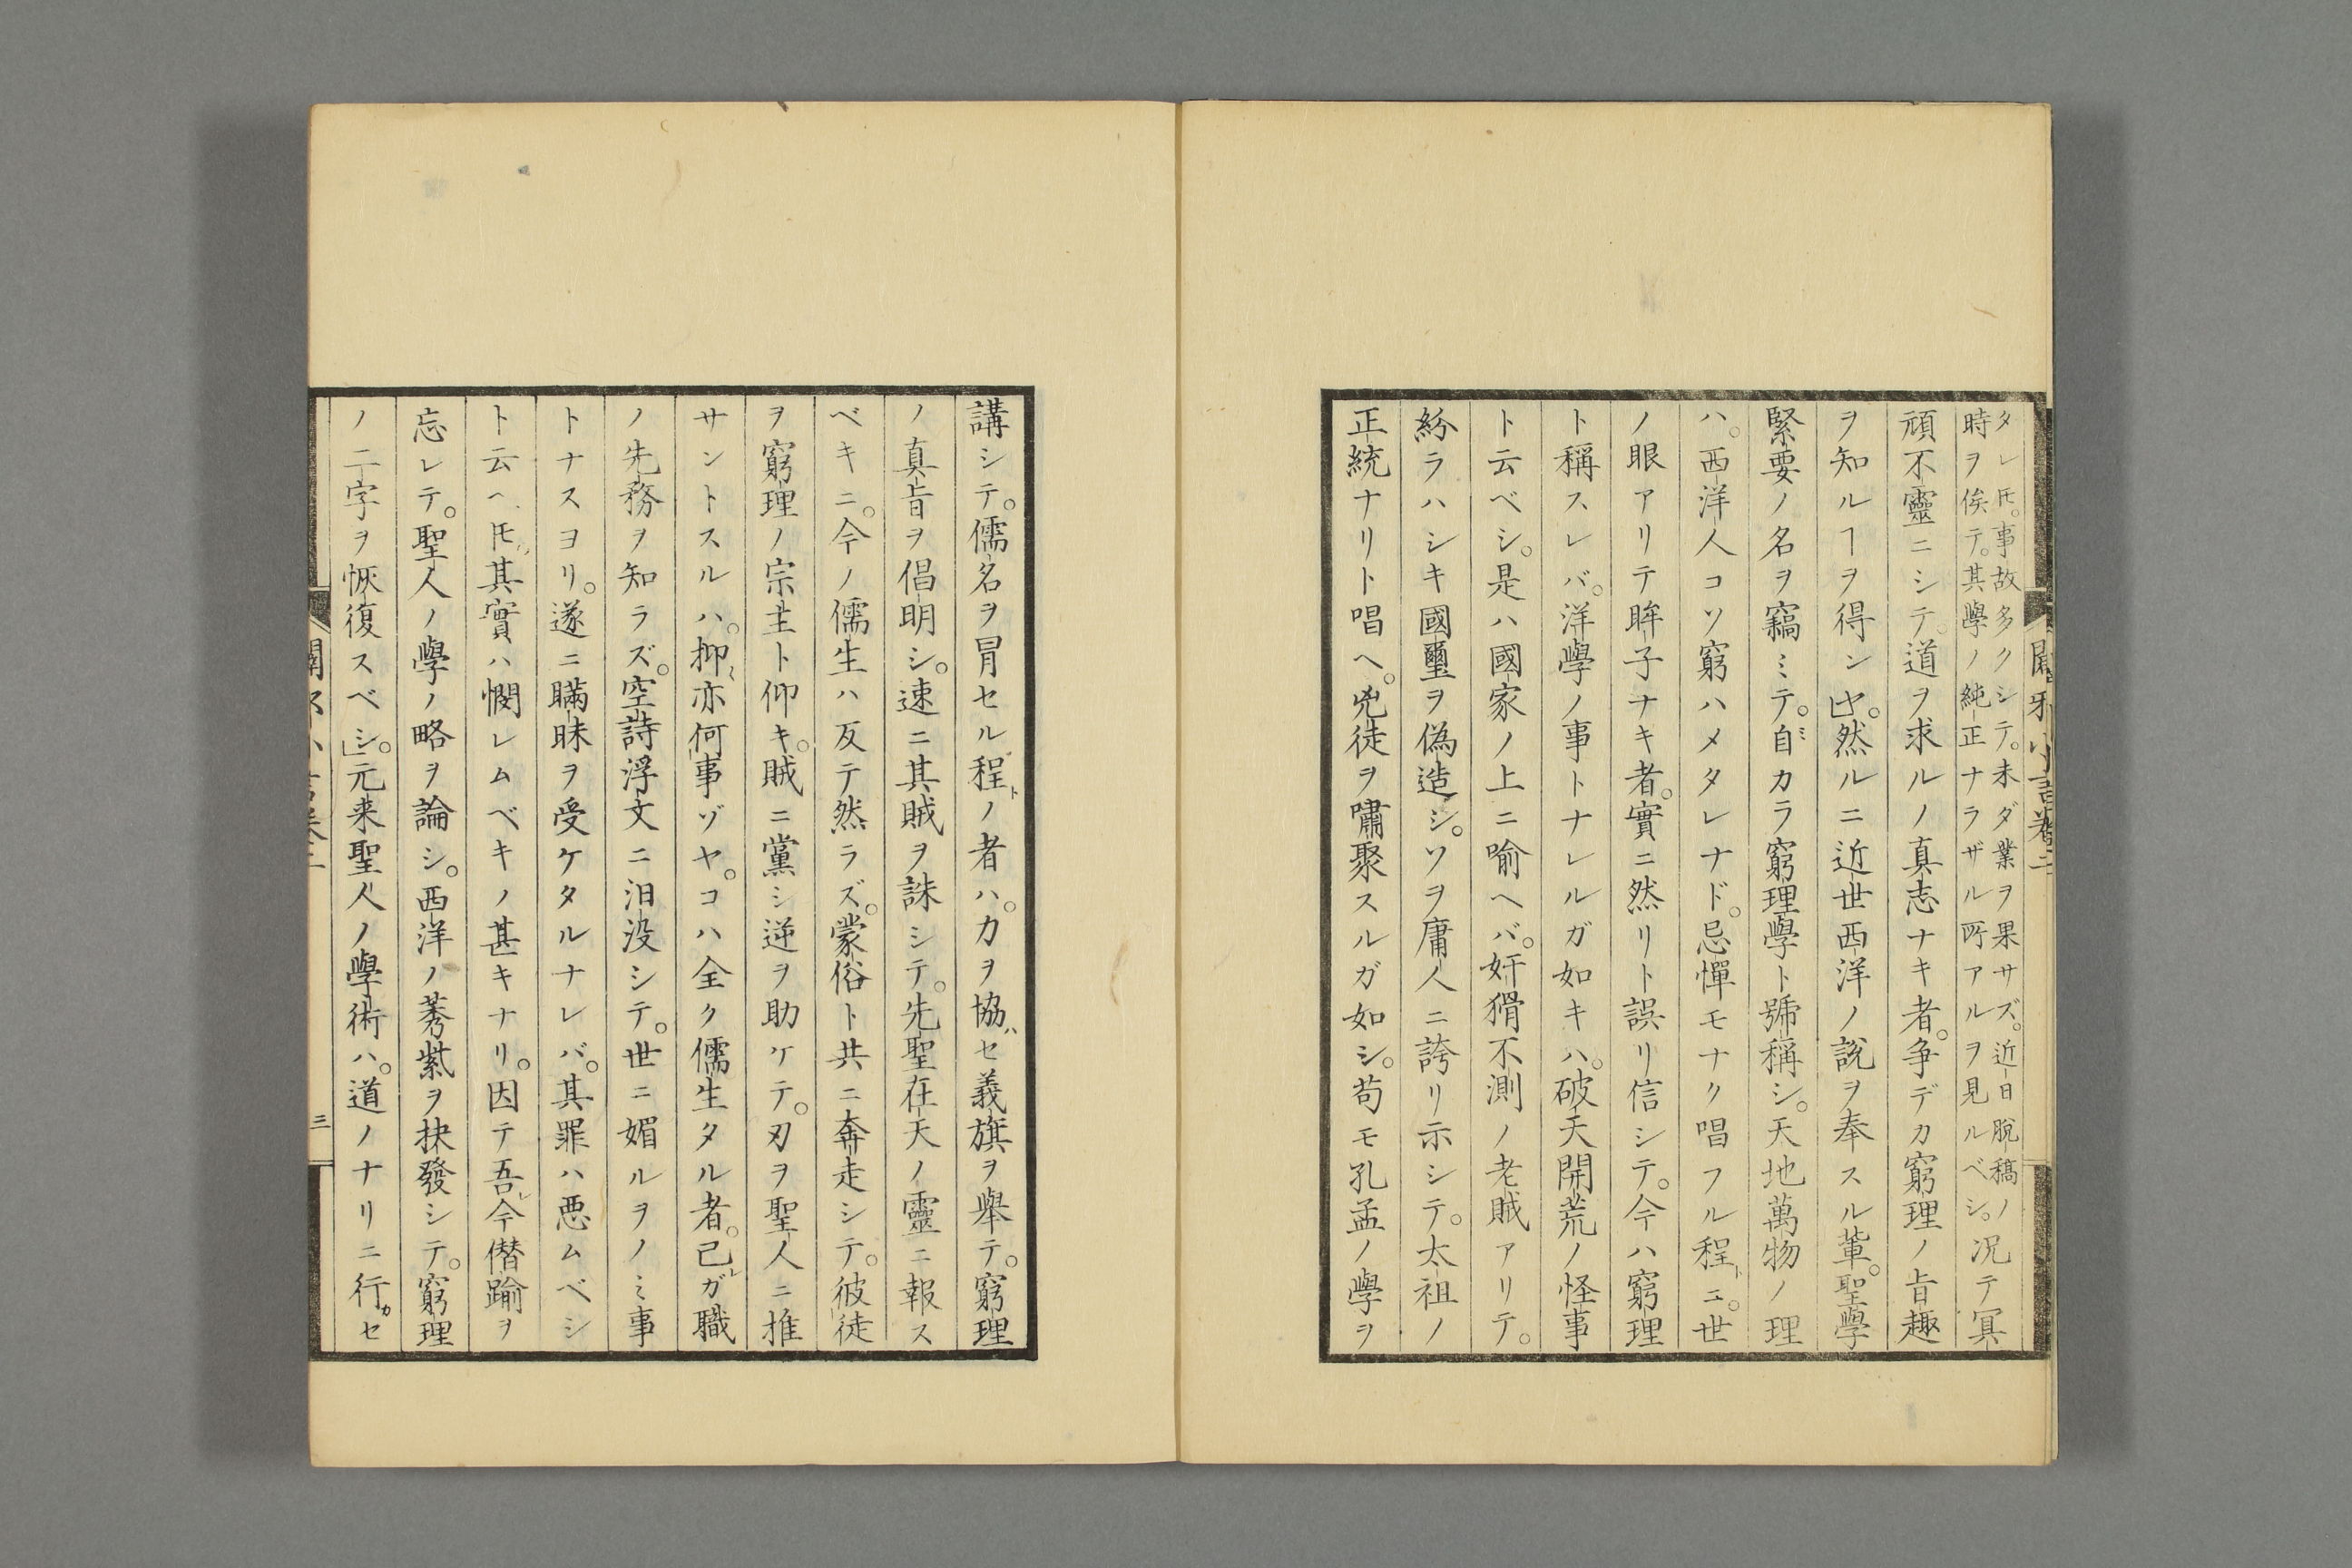 タレ𪜈。事故多クシテ。未ダ業ヲ果サズ。近日脫稿ノ
時ヲ俟テ。其學ノ純正ナラザル所アルヲ見ルベシ。
况テ冥
頑不靈ニシテ。道ヲ求ルノ真志ナキ者。争デカ窮理ノ旨趣
ヲ知ルヿヲ得ンヤ。然ルニ近世西洋ノ說ヲ奉スル輩。聖學
緊要ノ名ヲ竊ミテ。自ミカラ窮理學ト號稱シ。天地萬物ノ理
ハ。西洋人コソ窮ハメタレナド。忌憚モナク唱フル程トニ。世
ノ眼アリテ眸子ナキ者。實ニ然リト誤リ信シテ。今ハ窮理
ト稱スレバ。洋學ノ事トナレルガ如キハ。破天開荒ノ怪事
ト云ベシ。是ハ國家ノ上ニ喻ヘバ。奸猾不測ノ老賊アリテ。
紛ラハシキ國璽ヲ偽造シ。ソヲ庸人ニ誇リ示シテ。太祖ノ
正統ナリト唱ヘ。兇徒ヲ嘯聚スルガ如シ。苟モ孔孟ノ學ヲ
闢邪小言卷二
講シテ。儒名ヲ冐セル程トノ者ハ。力ヲ協ハセ義旗ヲ舉テ。窮理
ノ真旨ヲ倡明シ。速ニ其賊ヲ誅シテ。先聖在天ノ靈ニ報ス
ベキニ。今ノ儒生ハ反テ然ラズ。蒙俗ト共ニ奔走シテ。彼徒
ヲ窮理ノ宗主ト仰キ。賊ニ黨シ逆ヲ助ケテ。刃ヲ聖人ニ推
サントスルハ。抑〻亦何事ゾヤ。コハ全ク儒生タル者。己レガ職
ノ先務ヲ知ラズ。空詩浮文ニ汨没シテ。世ニ媚ルヲノミ事
トナスヨリ。遂ニ瞞昧ヲ受ケタルナレバ。其罪ハ悪ムベシ
ト云ヘ𪜈。其實ハ憫レムベキノ甚キナリ。因テ吾レ今僭踰ヲ
忘レテ。聖人ノ學ノ略ヲ論シ。西洋ノ莠紫ヲ抉發シテ。窮理
ノ二字ヲ恢復スベシ。」元来聖人ノ學術ハ。道ノナリニ行カセ
闢邪小言卷二 三